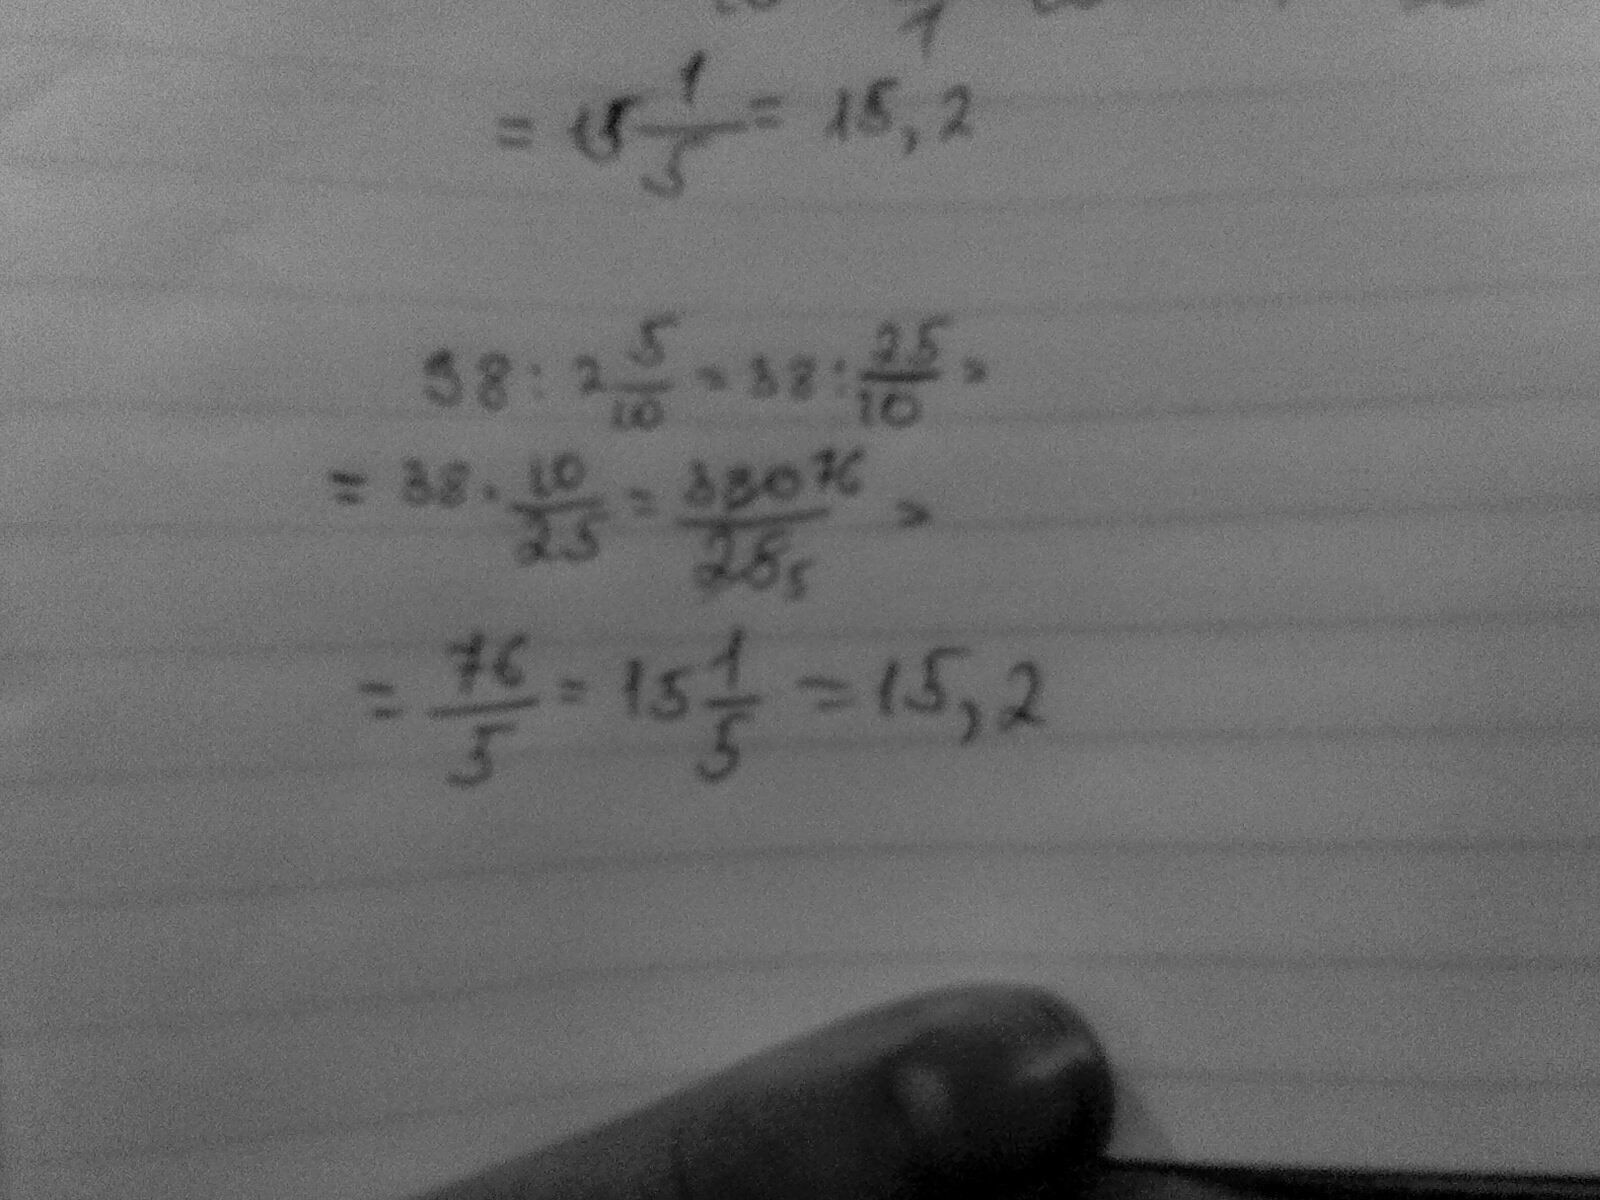 = 15 1/5 = 15,2
38 : 2 5/10 = 38 : 25/10 =
= 38 · 10/25 = 380 76/25 5 =
= 76/5 = 15 1/5 = 15,2